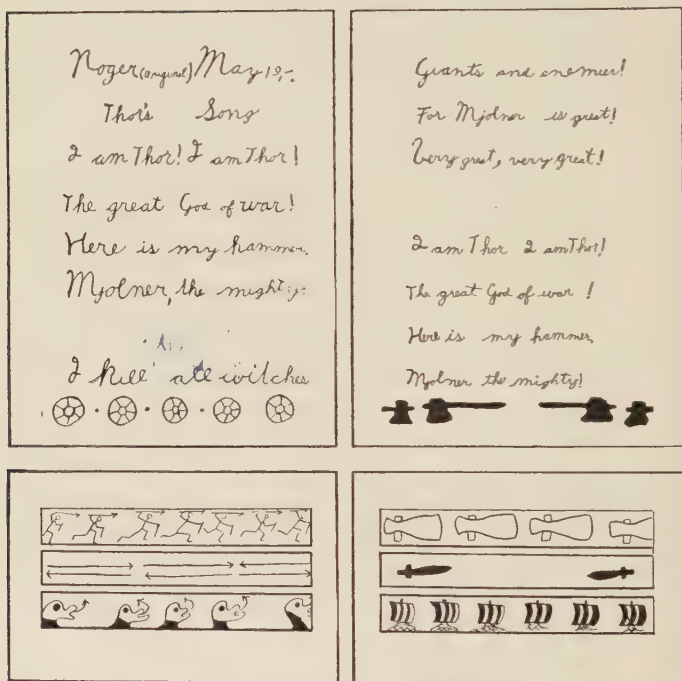 Roger (original) May 19,-.
Thor's Song
I am Thor! I am Thor!
The great God of war!
Here is my hammer,
Mjolner, the mighty;
I kill all witches
Giants and enemies!
For Mjolner is great!
Very great, very great!
I am Thor I am Thor!
The great God of war !
Here is my hammer,
Mjolner the mighty!